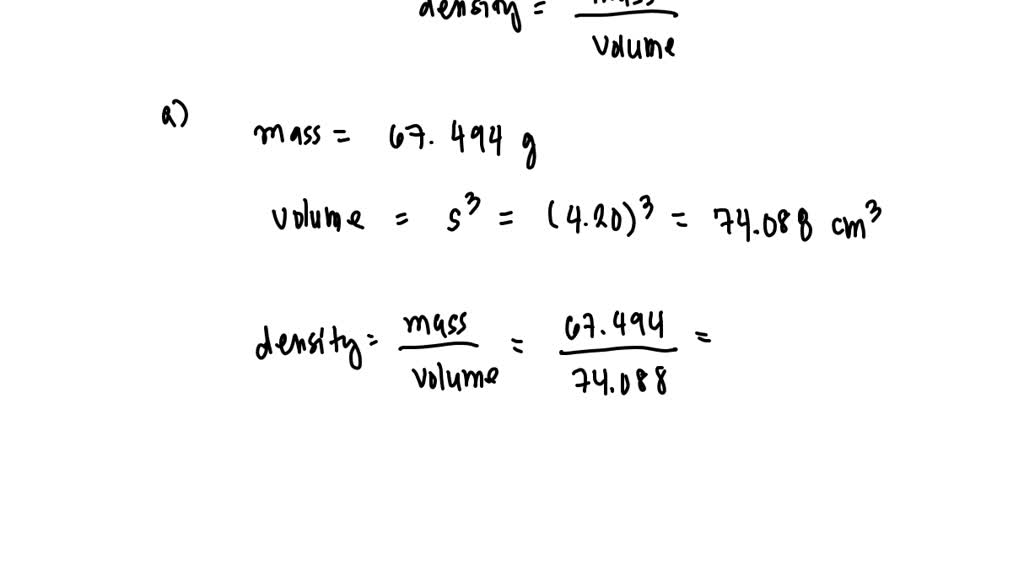 density = mass
volume
a)
mass = 67.494 g
volume = s³ = (4.20)³ = 74.088 cm³
density = mass / volume = 67.494 / 74.088 =